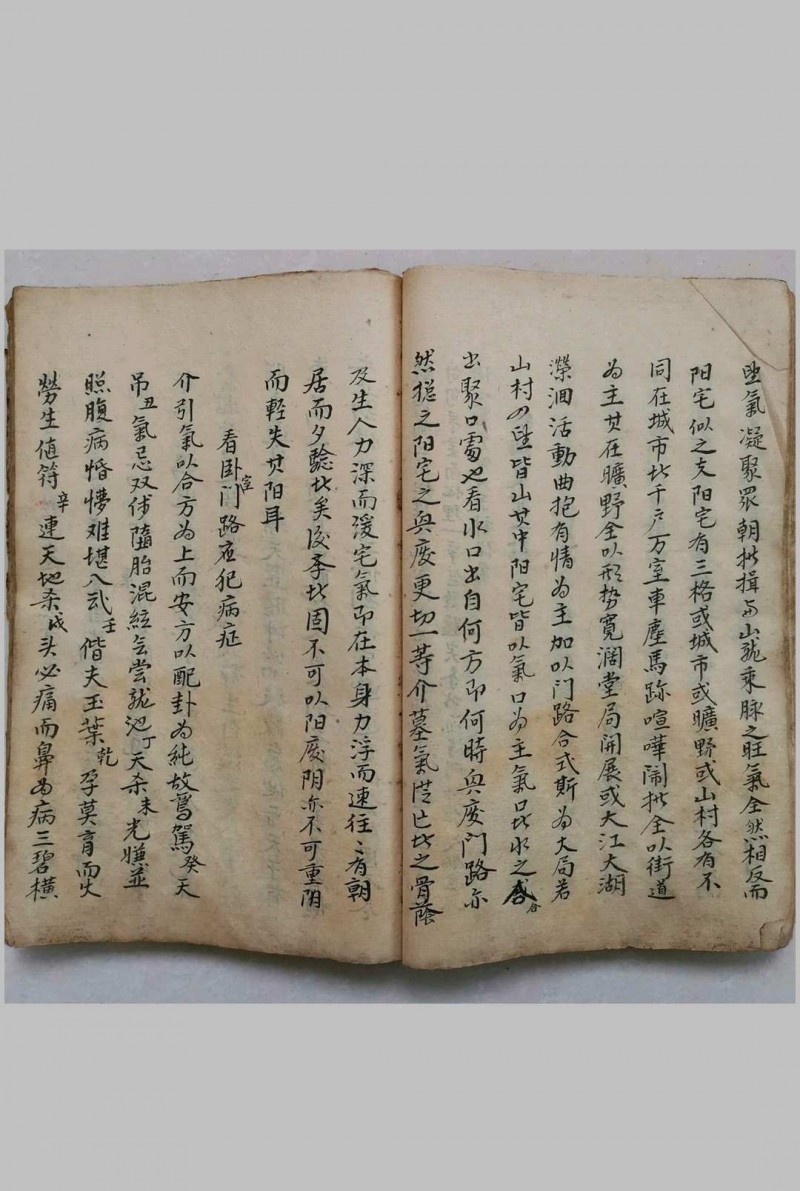 氣凝聚眾朝拱揖与山龍乘脉之旺氣全然相反而
阳宅似之支阳宅有三格或城市或曠野或山村各有不
同在城市比千戶万室車塵馬跡喧嘩闹扰全以街道
为主其在曠野全以形势寬阔堂局開展或大江大湖
瀠洄活動曲抱有情为主加以门路合式斯为大局若
山村四望皆山其中阳宅皆以氣口为主氣口比水之谷
出聚口處也看水口出自何方即何時興廢门路亦
然揔之阳宅之興廢更切一等介墓氣比之骨蔭
及生人力深而渡宅氣即在本身力浮而速往〻有朝
居而夕驗比矣後季比固不可以阳廢阴亦不可重阴
而輕失其阳耳
看卧室门路应犯病症
介引氣以合方为上而安方以配卦为純故鸞駕癸天
吊丑氣忌双侍墮胎混紜炁尝龍池丁天杀未光嫌並
照腹病惛懜难堪八武壬偕夫玉葉乾孕莫育而火
勞生值符辛連天地杀戌头必痛而鼻为病三碧橫